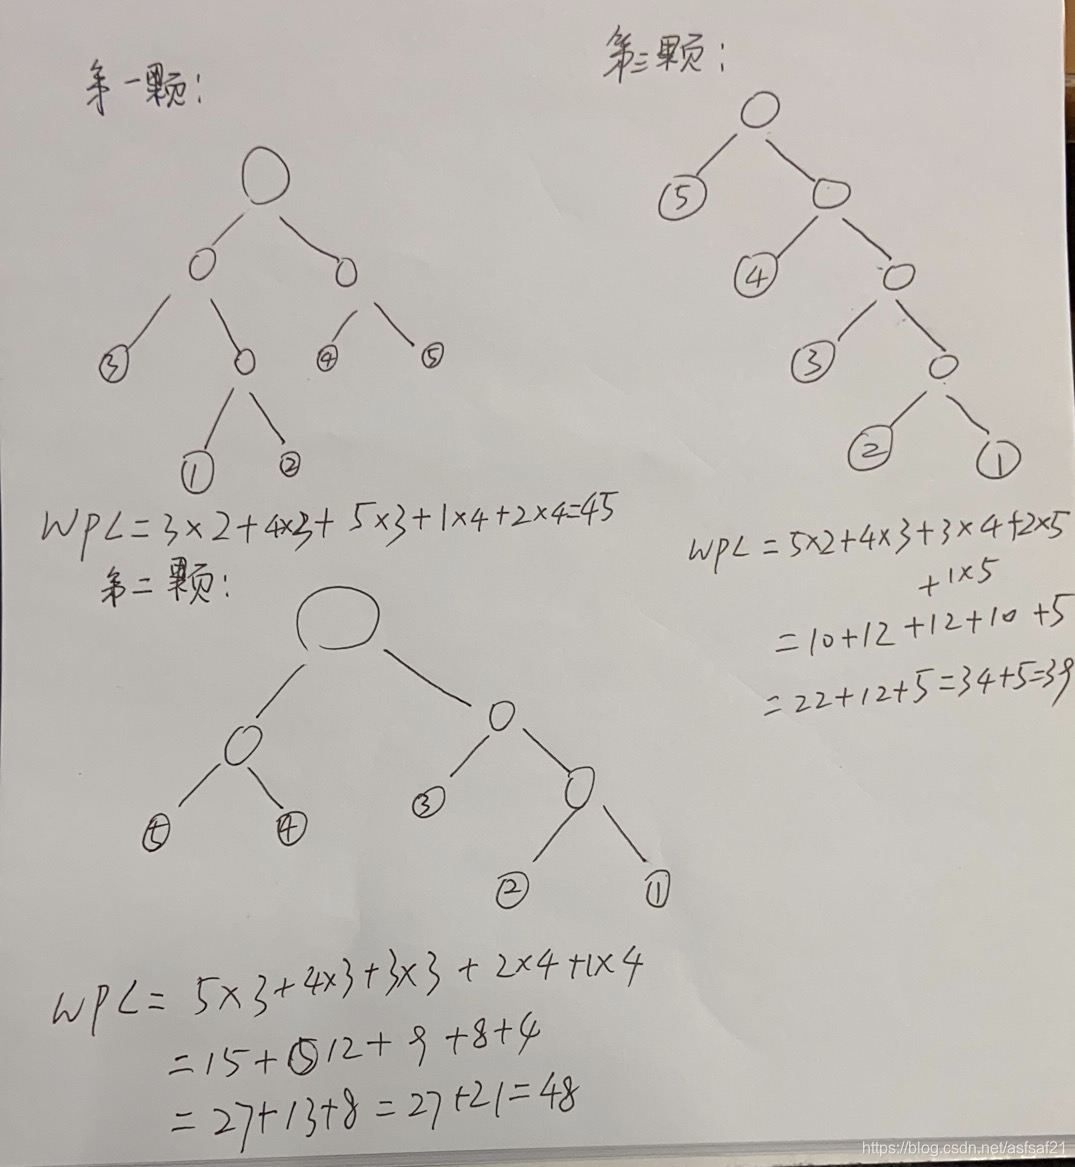 第一颗:
3
4
5
1
2
WPL=3×2+4×3+5×3+1×4+2×4=45
第二颗:
5
4
3
2
1
WPL=5×3+4×3+3×3+2×4+1×4
=15+12+9+8+4
=27+13+8=27+21=48
第三颗:
5
4
3
2
1
WPL=5×2+4×3+3×4+2×5
+1×5
=10+12+12+10+5
=22+12+5=34+5=39
https://blog.csdn.net/asfsaf21